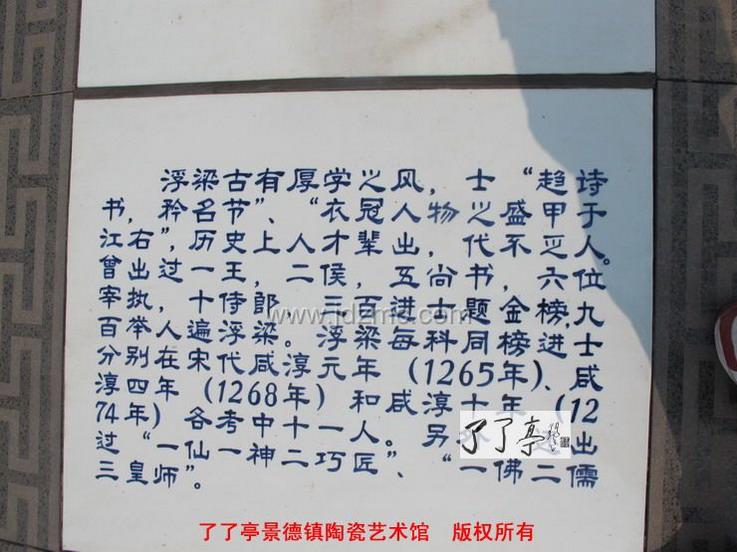 浮梁古有厚学之风，士“趋诗
书，矜名节”、“衣冠人物之盛甲于
江右”，历史上人才辈出，代不乏人。
曾出过一王，二侯，五尚书，六位
宰执，十侍郎，三百进士题金榜，九
百举人遍浮梁。浮梁每科同榜进士
分别在宋代咸淳元年（1265年）、咸
淳四年（1268年）和咸淳十年（12
74年）各考中十一人。另出
过“一仙一神二巧匠”、“一佛二儒
三皇师”。
了了亭
了了亭景德镇陶瓷艺术馆 版权所有